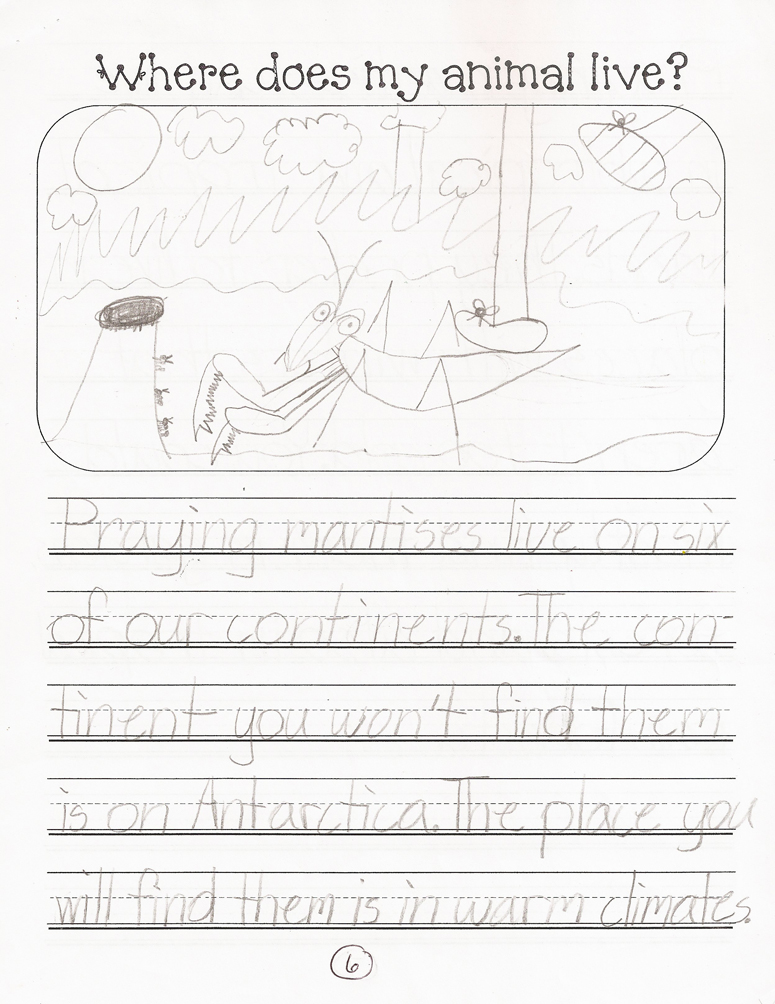 Where does my animal live?
Praying mantises live on six
of our continents. The con-
tinent you won't find them
is on Antarctica. The place you
will find them is in warm climates.
6